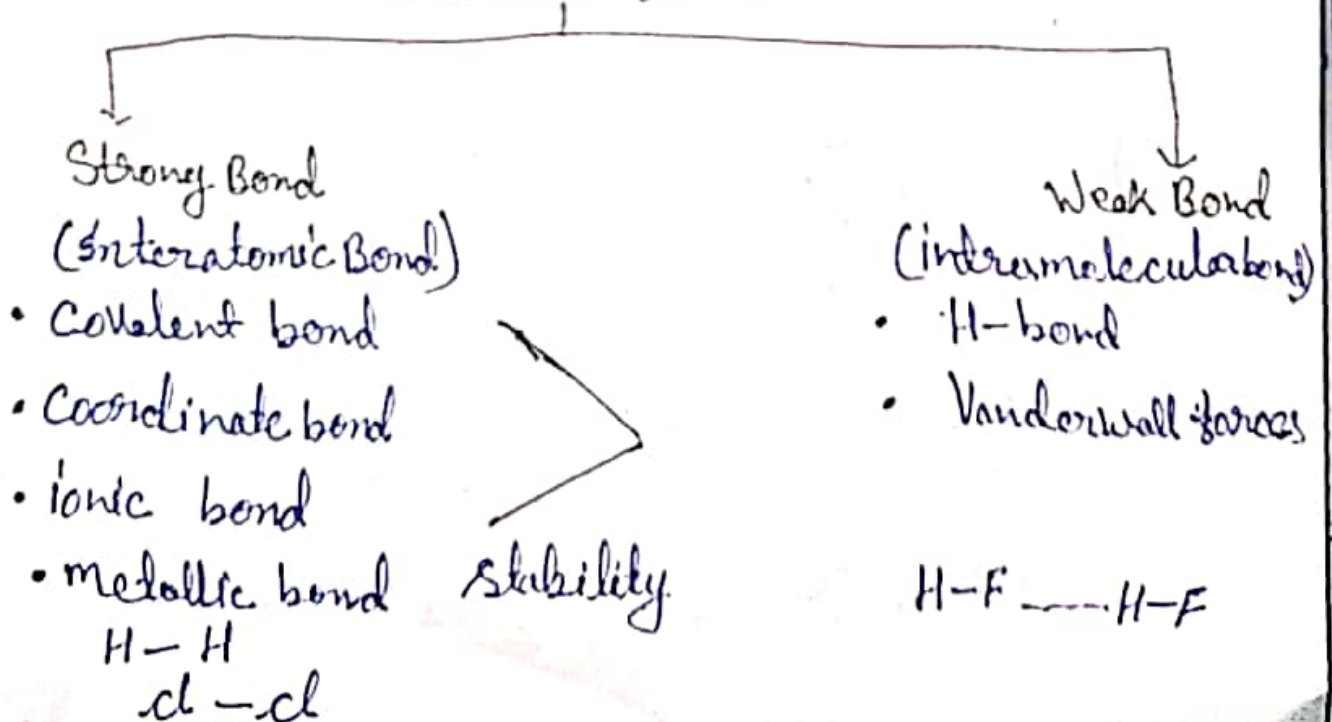 Strong Bond
(Interatomic Bond)
• Covalent bond
• Coordinate bond
• ionic bond
• metallic bond
H – H
cl – cl
stability
Weak Bond
(intermolecular bond)
• H-bond
• Vanderwall forces
H-F ------ H-F